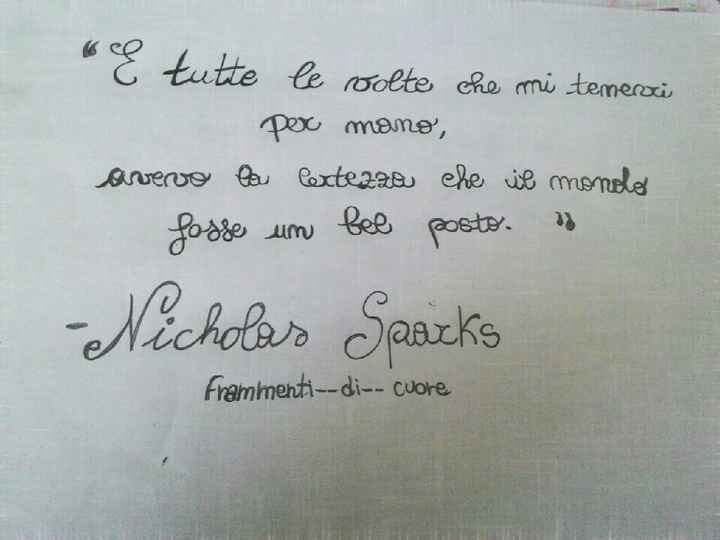 “E tutte le volte che mi tenevi
per mano,
avevo la certezza che il mondo
fosse un bel posto.”
-Nicholas Sparks
Frammenti--di--cuore